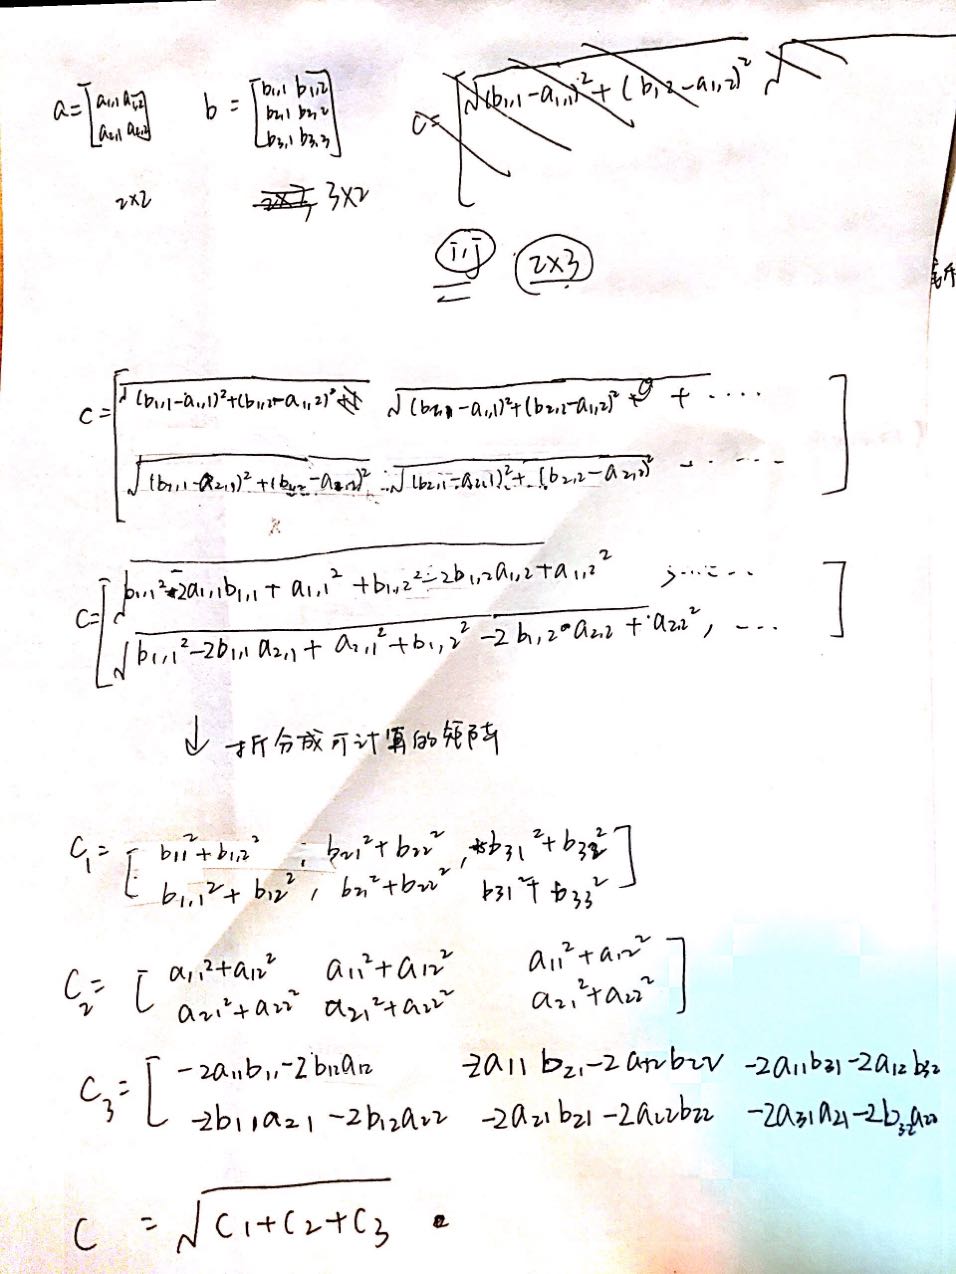 a = [a1,1 a1,2
a2,1 a2,2]
2×2
b = [b1,1 b1,2
b2,1 b2,2
b3,1 b3,3]
3×2
c = [√(b1,1-a1,1)²+(b1,2-a1,2)² √
i,j 2×3
c = [√(b1,1-a1,1)²+(b1,2-a1,2)² √(b2,1-a1,1)²+(b2,2-a1,2)² + ····
√(b1,1-a2,1)²+(b1,2-a2,2)² √(b2,1-a2,1)²+(b2,2-a2,2)² ····]
c = [√b1,1²-2a1,1b1,1+a1,1²+b1,2²-2b1,2a1,2+a1,2² , ····
√b1,1²-2b1,1a2,1+a2,1²+b1,2²-2b1,2a2,2+a22² , ···]
↓ 拆分成可计算的矩阵
C1 = [b11²+b1,2² , b21²+b22² , b31²+b32²
b1,1²+b12² , b21²+b22² b31²+b33²]
C2 = [a11²+a12² a11²+a12² a11²+a12²
a21²+a22² a21²+a22² a21²+a22²]
C3 = [-2a11b11-2b12a12 -2a11b21-2a12b22 -2a11b31-2a12b32
-2b11a21-2b12a22 -2a21b21-2a22b22 -2a31a21-2b32a22
C = √C1+C2+C3